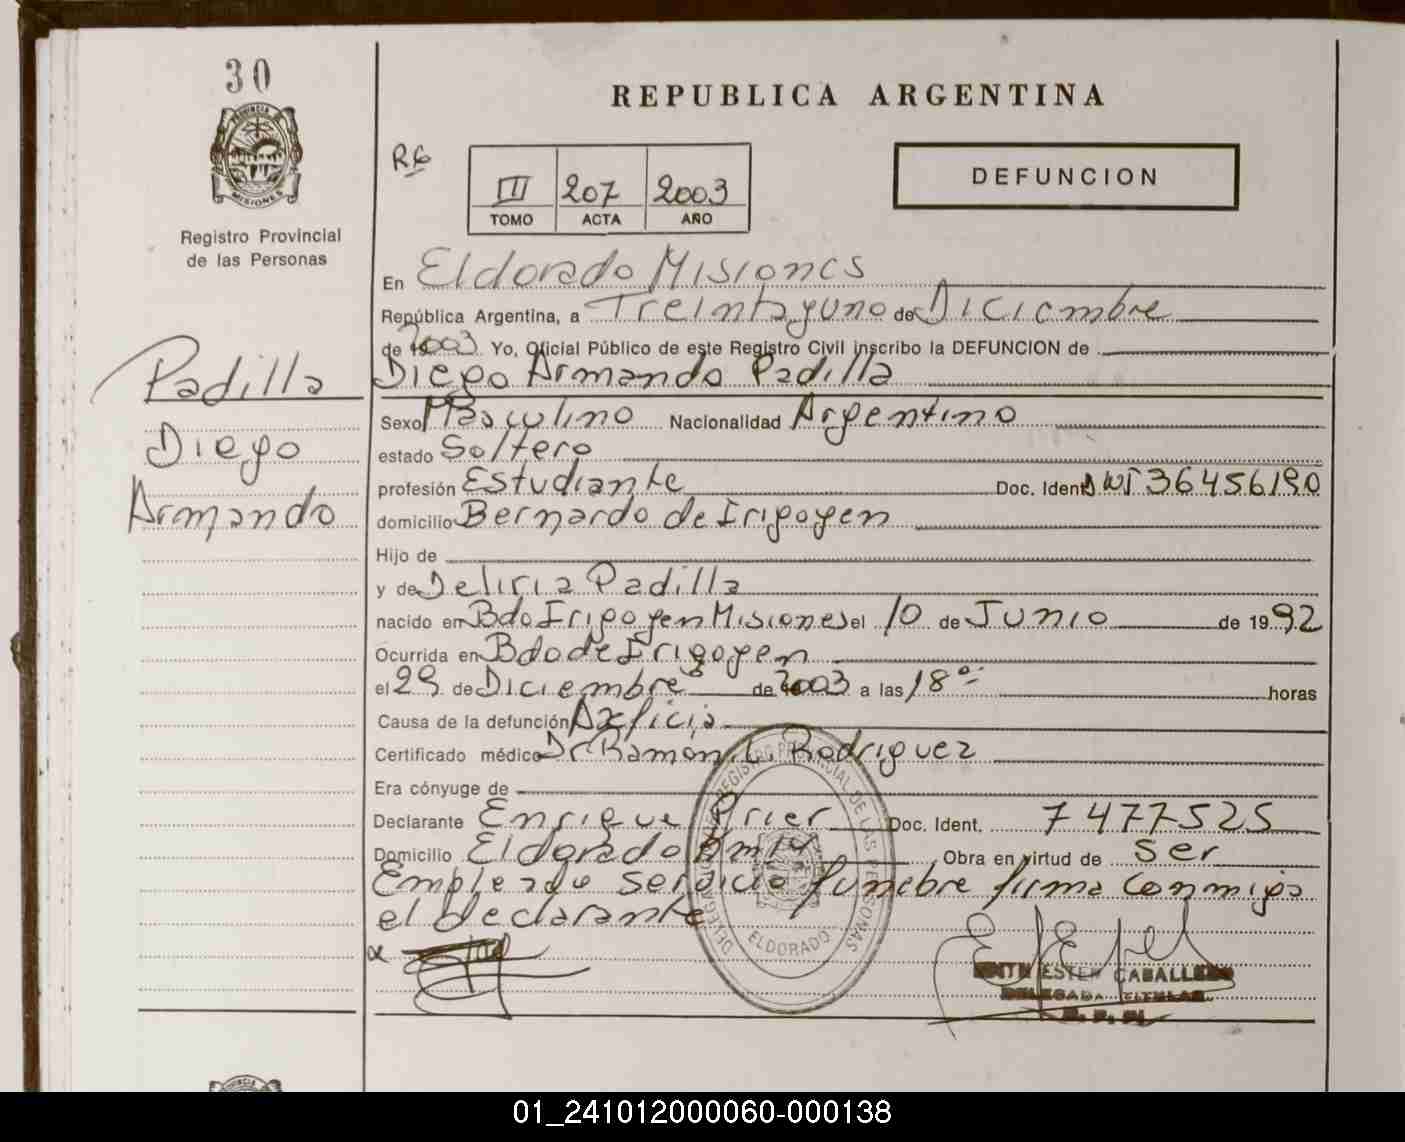 30
PROVINCIA DE
MISIONES
Registro Provincial
de las Personas
Padilla
Diego
Armando
REPUBLICA ARGENTINA
III 207 2003
TOMO ACTA AÑO
DEFUNCION
En Eldorado Misiones
República Argentina, a Treintayuno de Diciembre
de 2003 Yo, Oficial Público de este Registro Civil inscribo la DEFUNCION de
Diego Armando Padilla
Sexo Masculino Nacionalidad Argentino
estado Soltero
profesión Estudiante Doc. Ident. DNI 36456190
domicilio Bernardo de Irigoyen
Hijo de
y de Deliria Padilla
nacido en Bdo Irigoyen Misiones el 10 de Junio de 1992
Ocurrida en Bdo de Irigoyen
el 29 de Diciembre de 2003 a las 18 horas
Causa de la defunción Axficia
Certificado médico Dr Ramon Rodriguez
Era cónyuge de
Declarante Enrique Prier Doc. Ident. 7477525
Domicilio Eldorado Obra en virtud de ser
Empleado servicio funebre firma conmigo
el declarante
DELEGACION REGISTRO PROVINCIAL DE LAS PERSONAS
ELDORADO
EDITH ESTER CABALLERO
DELEGADA TITULAR
01_241012000060-000138